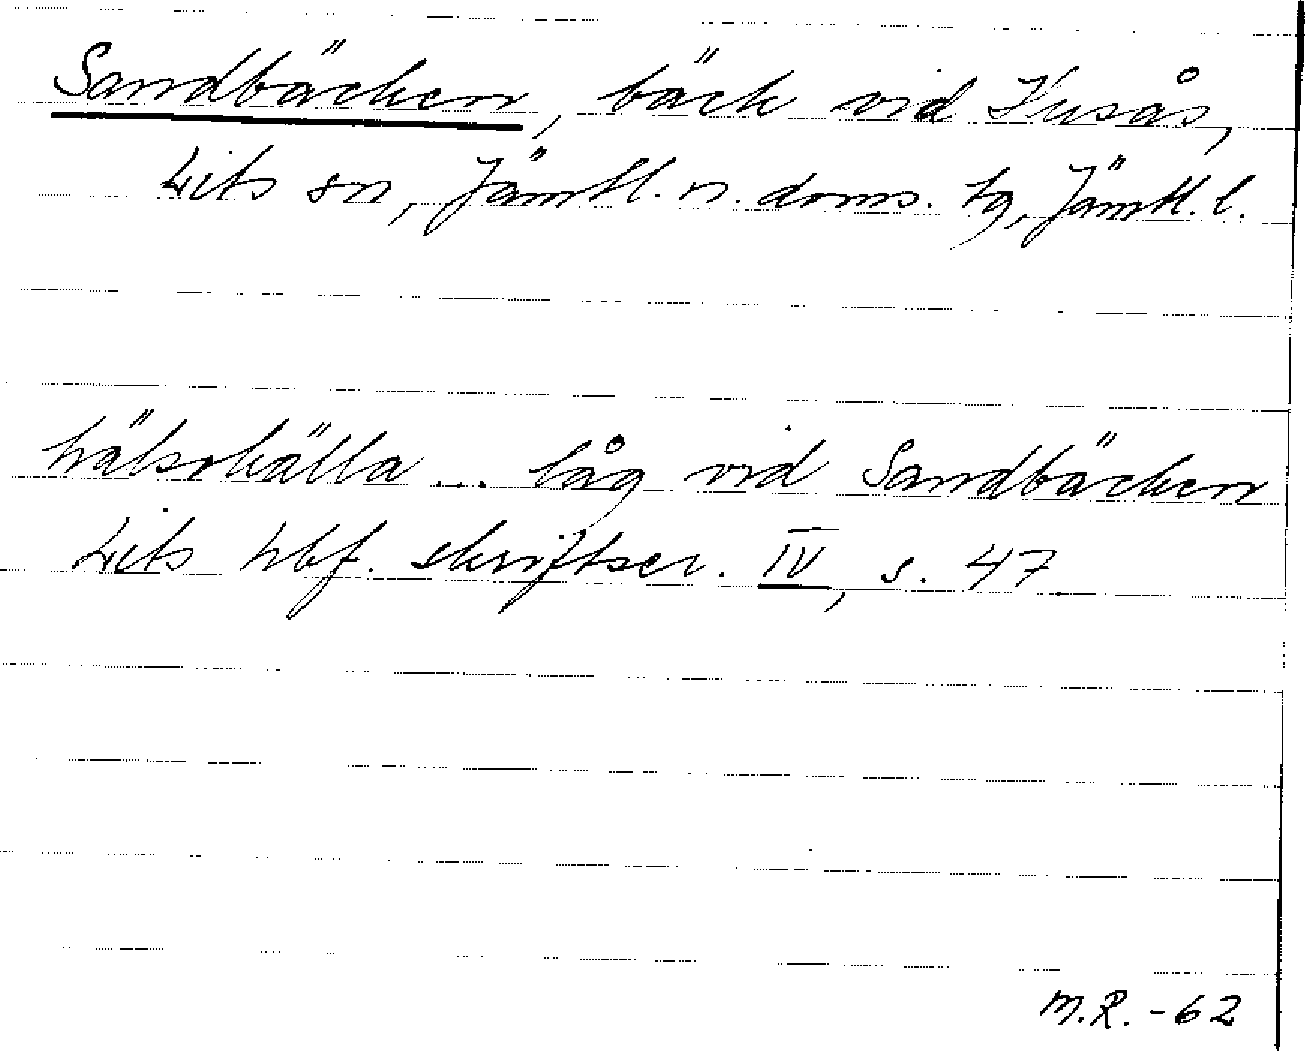 Sandbäcken, bäck vid Kusås,
Lits sn, Jämtl. n. doms. tg, Jämtl. l.
hälsokälla ... låg vid Sandbäcken
Lits hbf. skriftser. IV, s. 47
M.R. -62